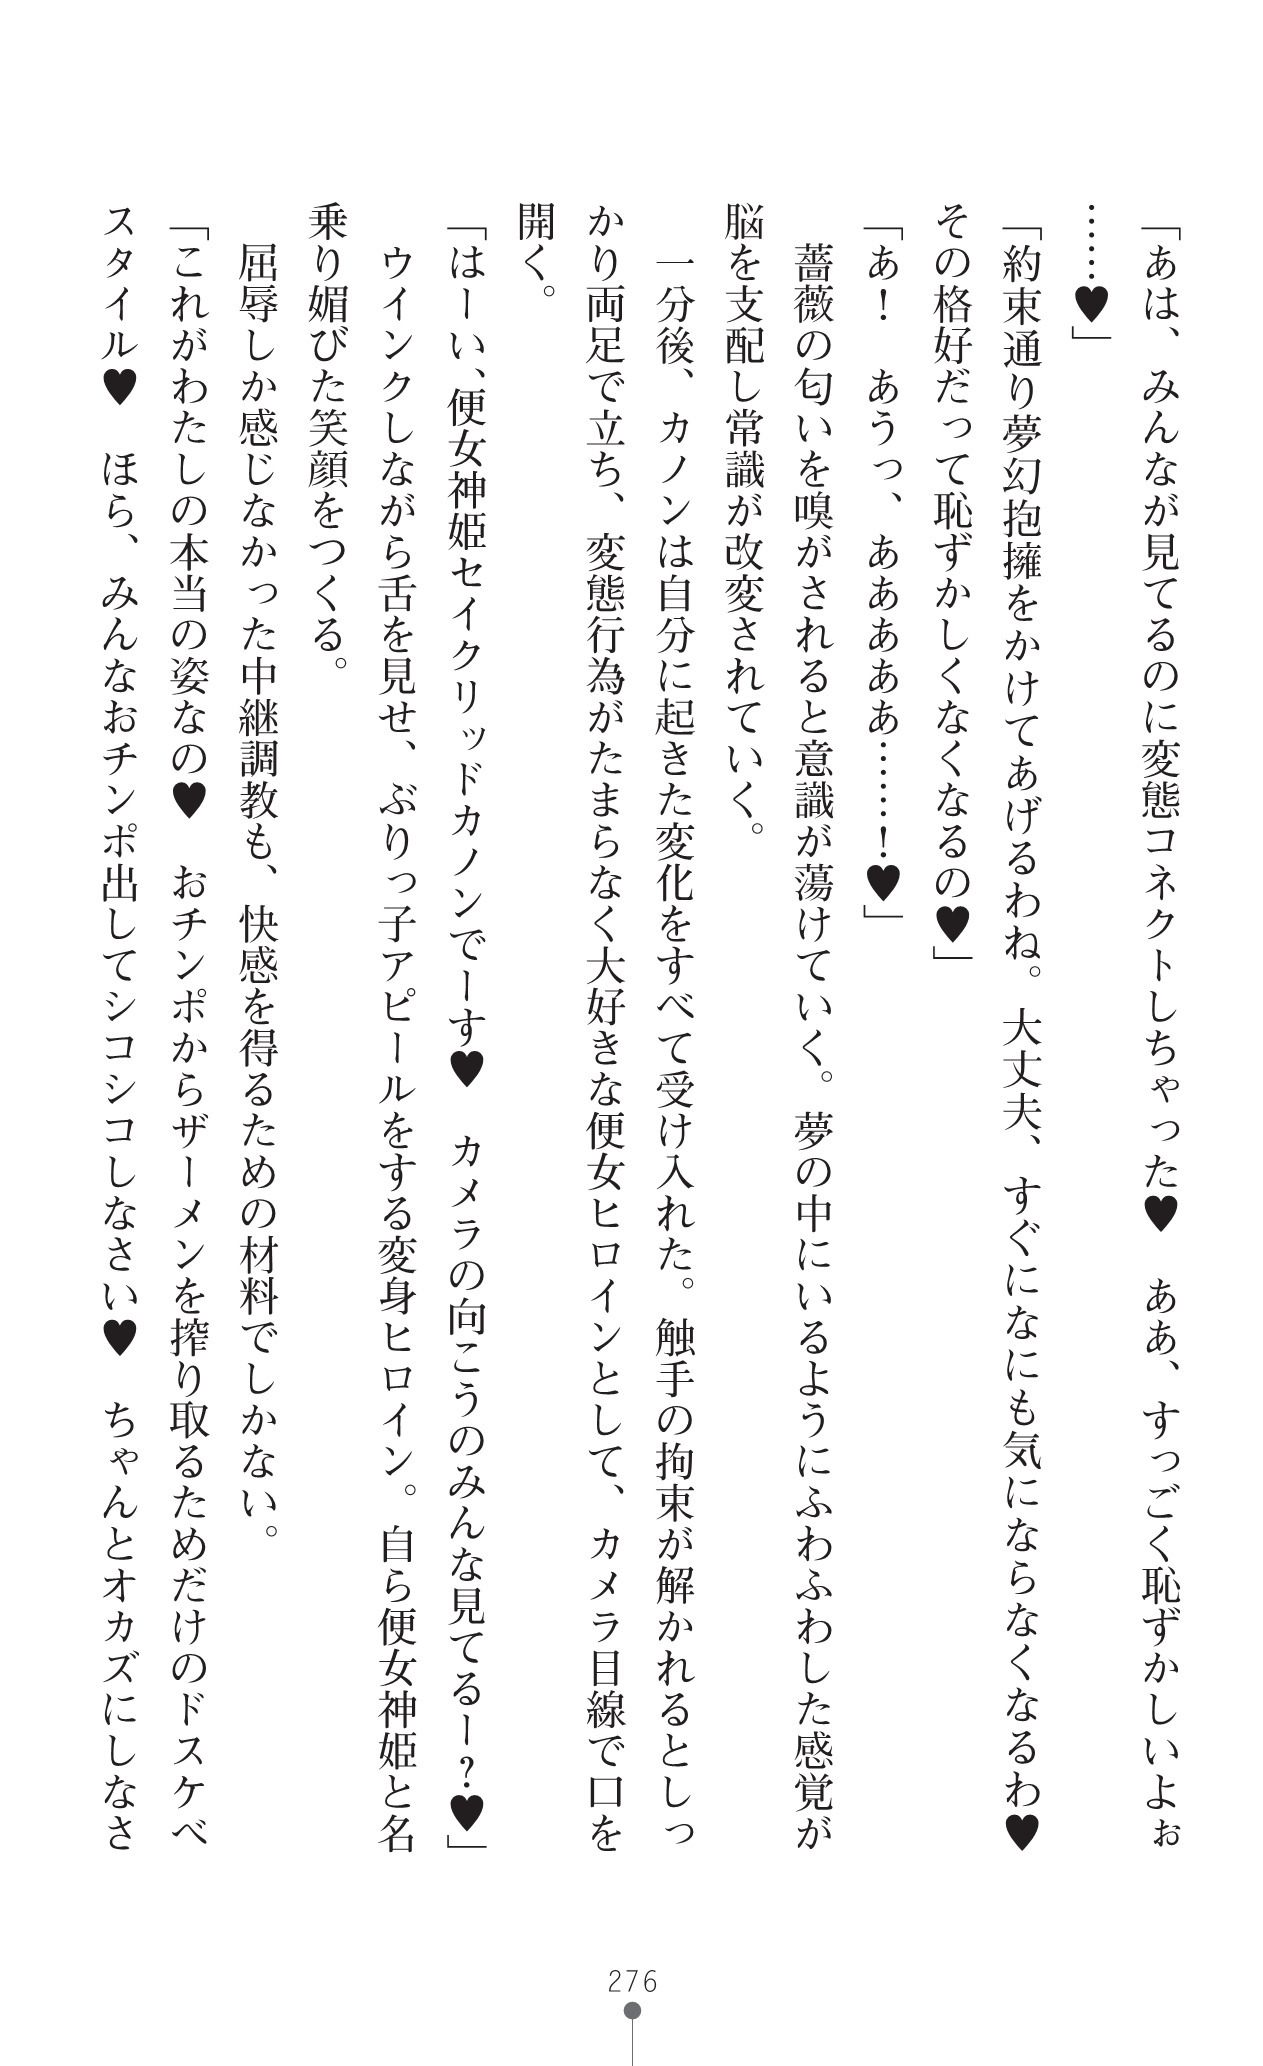 「あは、みんなが見てるのに変態コネクトしちゃった♥　ああ、すっごく恥ずかしいよぉ
……♥」
「約束通り夢幻抱擁をかけてあげるわね。大丈夫、すぐになにも気にならなくなるわ♥
その格好だって恥ずかしくなくなるの♥」
「あ！　あうっ、ああああぁ……！♥」
　薔薇の匂いを嗅がされると意識が蕩けていく。夢の中にいるようにふわふわした感覚が
脳を支配し常識が改変されていく。
　一分後、カノンは自分に起きた変化をすべて受け入れた。触手の拘束が解かれるとしっ
かり両足で立ち、変態行為がたまらなく大好きな便女ヒロインとして、カメラ目線で口を
開く。
「はーい、便女神姫セイクリッドカノンでーす♥　カメラの向こうのみんな見てるー？♥」
　ウインクしながら舌を見せ、ぶりっ子アピールをする変身ヒロイン。自ら便女神姫と名
乗り媚びた笑顔をつくる。
　屈辱しか感じなかった中継調教も、快感を得るための材料でしかない。
「これがわたしの本当の姿なの♥　おチンポからザーメンを搾り取るためだけのドスケベ
スタイル♥　ほら、みんなおチンポ出してシコシコしなさい♥　ちゃんとオカズにしなさ
276